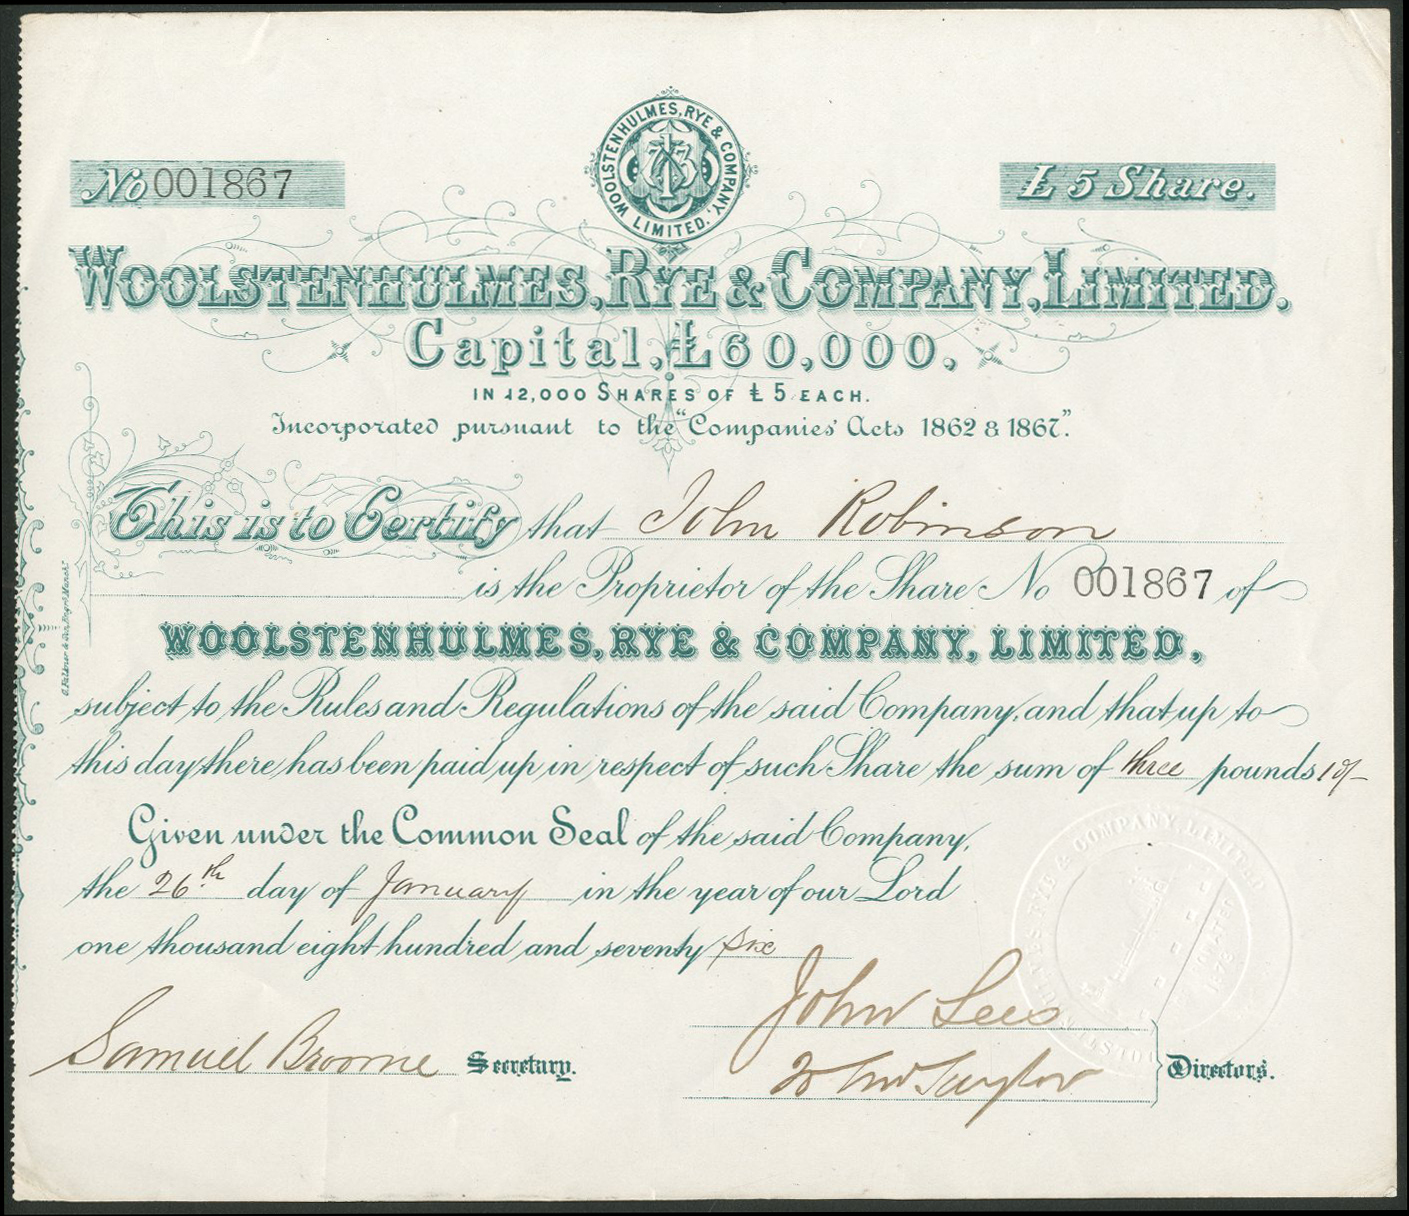 WOOLSTENHULMES, RYE & COMPANY, LIMITED.
No 001867
£5 Share.
WOOLSTENHULMES, RYE & COMPANY, LIMITED.
Capital, £60,000,
IN 12,000 SHARES OF £5 EACH.
Incorporated pursuant to the "Companies' Acts 1862 & 1867."
This is to Certify that John Robinson
is the Proprietor of the Share No 001867 of
WOOLSTENHULMES, RYE & COMPANY, LIMITED,
subject to the Rules and Regulations of the said Company, and that up to
this day there has been paid up in respect of such Share the sum of three pounds
Given under the Common Seal of the said Company,
the 26th day of January in the year of our Lord
one thousand eight hundred and seventy six
John Lees
Samuel Broome Secretary.
John Taylor
Directors.